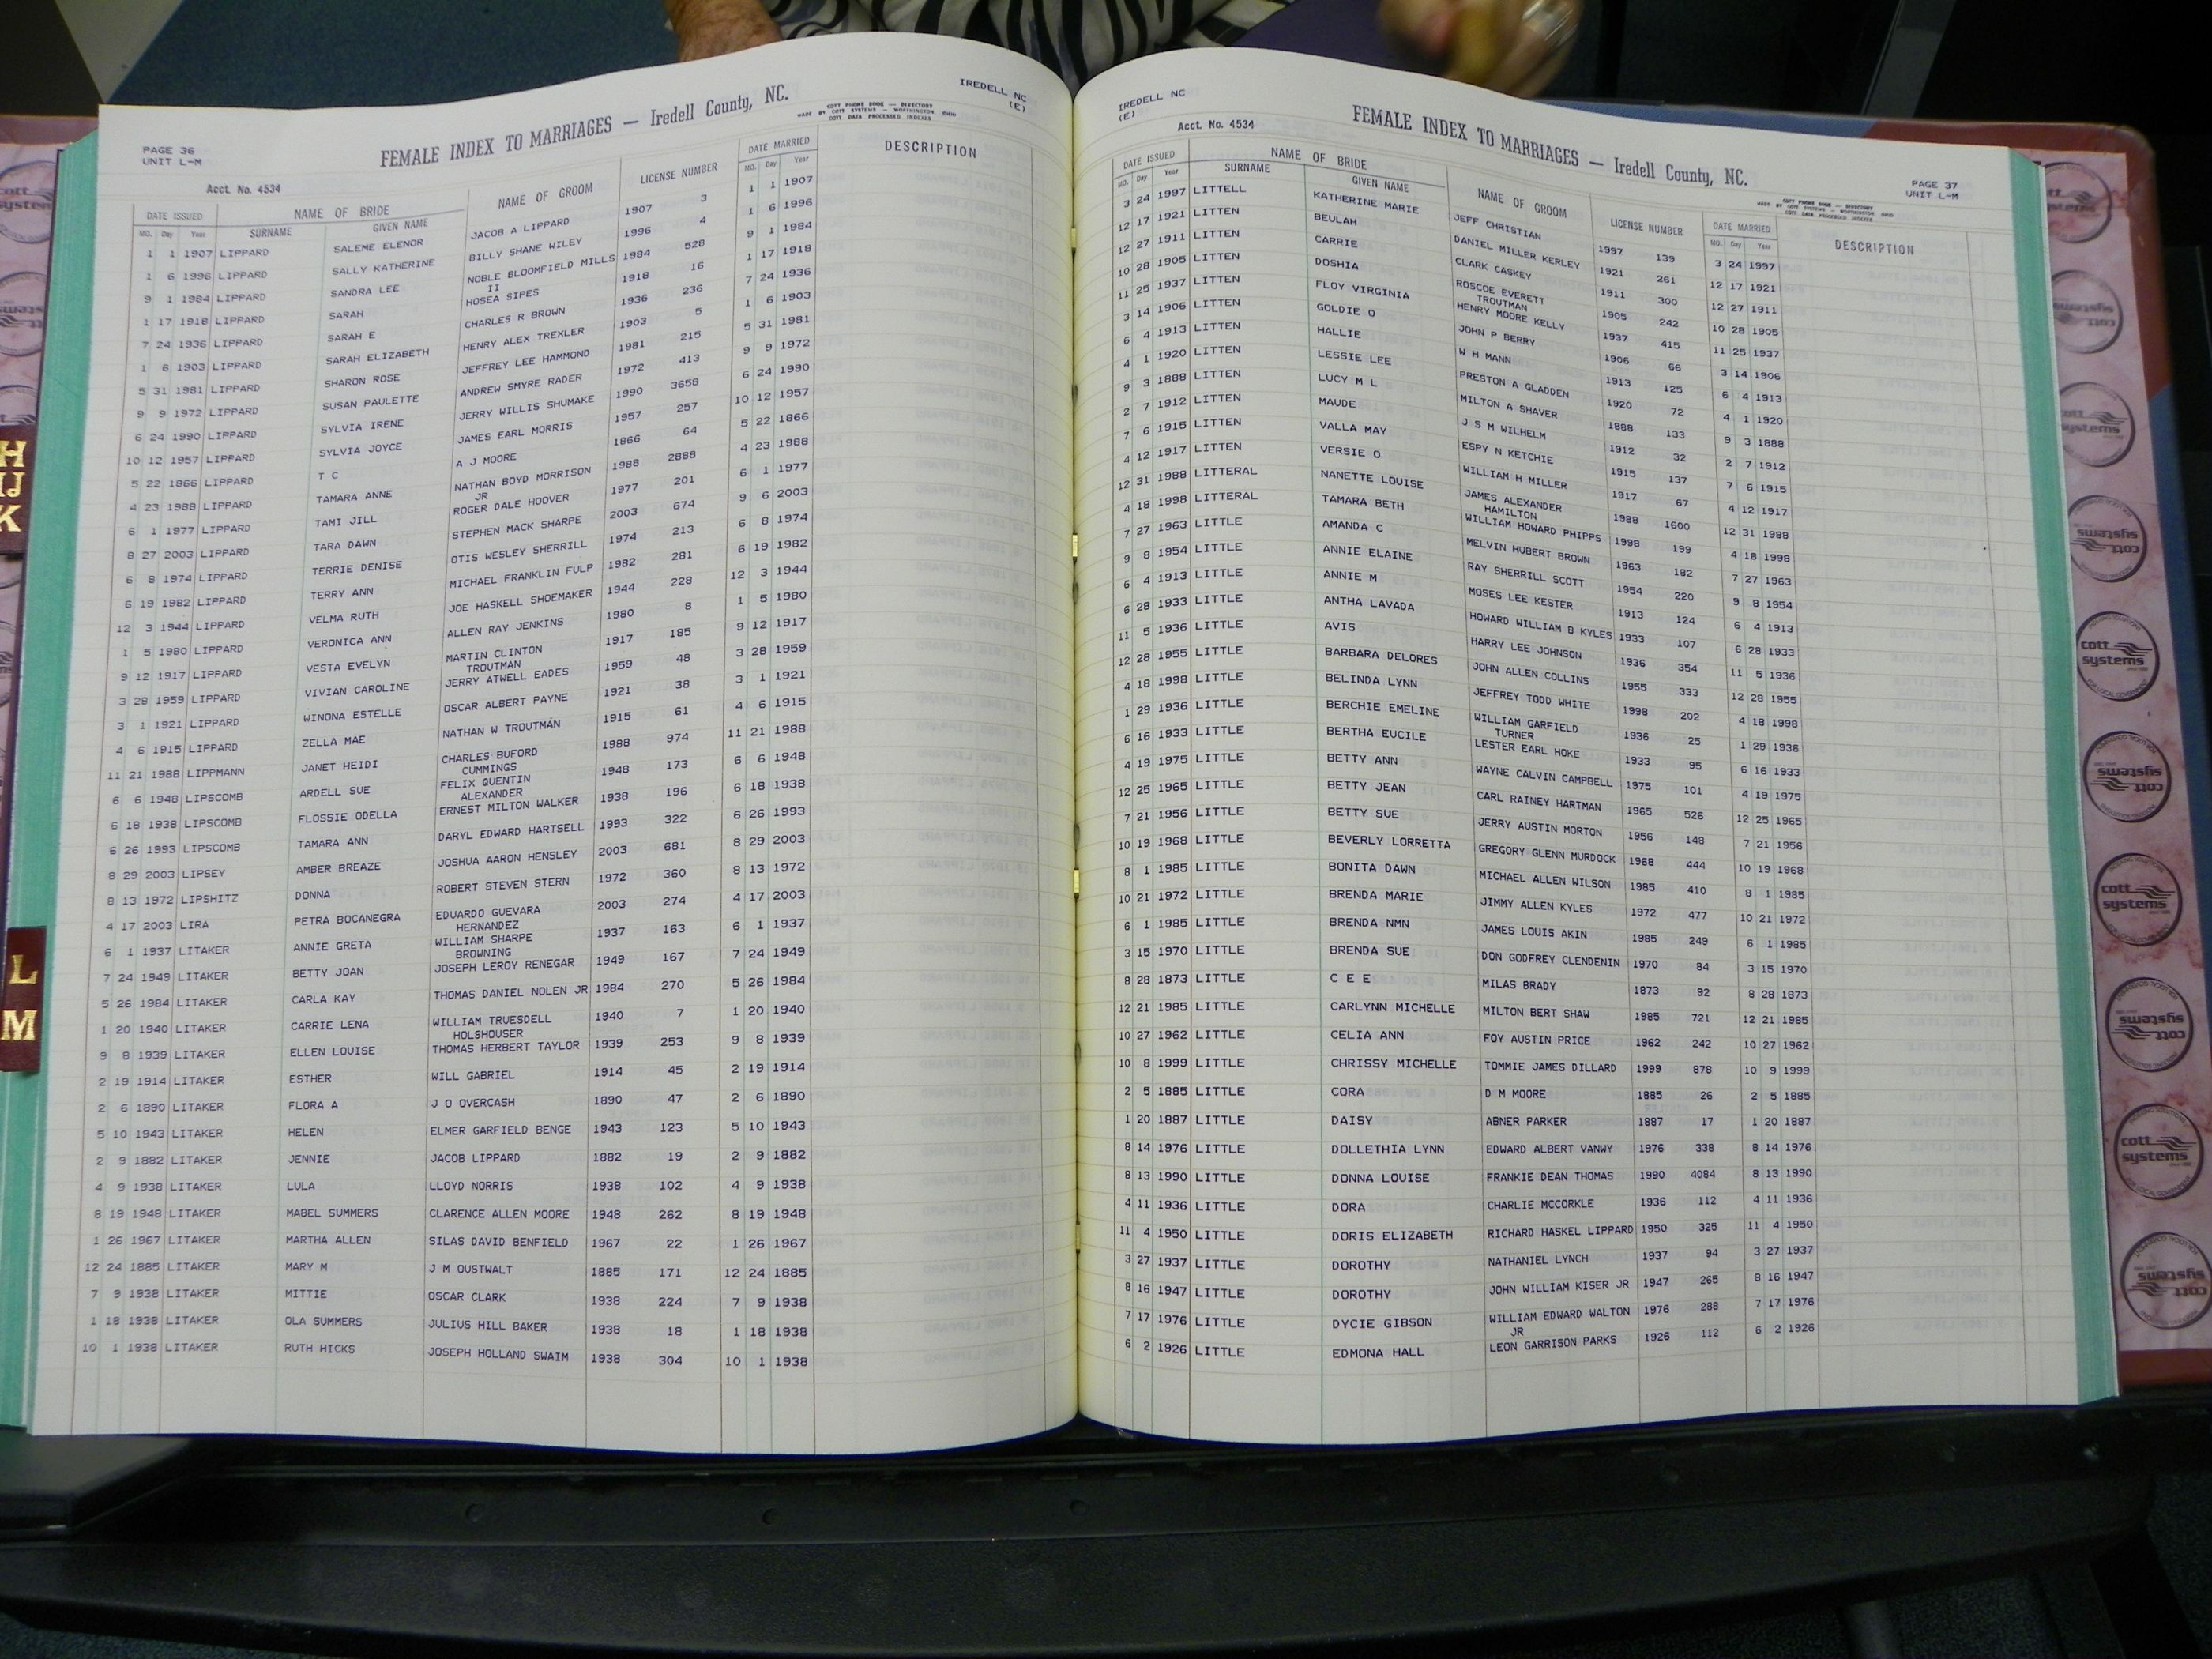 IREDELL NC
(E)
PAGE 36
UNIT L-M
FEMALE INDEX TO MARRIAGES — Iredell County, NC.
COTT PHONE BOOK — DIRECTORY
MADE BY COTT SYSTEMS — WORTHINGTON OHIO
COTT DATA PROCESSED INDEXES
Acct. No. 4534
DATE ISSUED NAME OF BRIDE NAME OF GROOM LICENSE NUMBER DATE MARRIED DESCRIPTION
MO. Day Year SURNAME GIVEN NAME MO. Day Year
1 1 1907 LIPPARD SALEME ELENOR JACOB A LIPPARD 1907 3 1 1 1907
1 6 1996 LIPPARD SALLY KATHERINE BILLY SHANE WILEY 1996 4 1 6 1996
9 1 1984 LIPPARD SANDRA LEE NOBLE BLOOMFIELD MILLS 1984 528 9 1 1984
II
1 17 1918 LIPPARD SARAH HOSEA SIPES 1918 16 1 17 1918
7 24 1936 LIPPARD SARAH E CHARLES R BROWN 1936 236 7 24 1936
1 6 1903 LIPPARD SARAH ELIZABETH HENRY ALEX TREXLER 1903 5 1 6 1903
5 31 1981 LIPPARD SHARON ROSE JEFFREY LEE HAMMOND 1981 215 5 31 1981
9 9 1972 LIPPARD SUSAN PAULETTE ANDREW SMYRE RADER 1972 413 9 9 1972
6 24 1990 LIPPARD SYLVIA IRENE JERRY WILLIS SHUMAKE 1990 3658 6 24 1990
10 12 1957 LIPPARD SYLVIA JOYCE JAMES EARL MORRIS 1957 257 10 12 1957
5 22 1866 LIPPARD T C A J MOORE 1866 64 5 22 1866
4 23 1988 LIPPARD TAMARA ANNE NATHAN BOYD MORRISON 1988 2889 4 23 1988
JR
6 1 1977 LIPPARD TAMI JILL ROGER DALE HOOVER 1977 201 6 1 1977
8 27 2003 LIPPARD TARA DAWN STEPHEN MACK SHARPE 2003 674 9 6 2003
6 8 1974 LIPPARD TERRIE DENISE OTIS WESLEY SHERRILL 1974 213 6 8 1974
6 19 1982 LIPPARD TERRY ANN MICHAEL FRANKLIN FULP 1982 281 6 19 1982
12 3 1944 LIPPARD VELMA RUTH JOE HASKELL SHOEMAKER 1944 228 12 3 1944
1 5 1980 LIPPARD VERONICA ANN ALLEN RAY JENKINS 1980 8 1 5 1980
9 12 1917 LIPPARD VESTA EVELYN MARTIN CLINTON 1917 185 9 12 1917
TROUTMAN
3 28 1959 LIPPARD VIVIAN CAROLINE JERRY ATWELL EADES 1959 48 3 28 1959
3 1 1921 LIPPARD WINONA ESTELLE OSCAR ALBERT PAYNE 1921 38 3 1 1921
4 6 1915 LIPPARD ZELLA MAE NATHAN W TROUTMAN 1915 61 4 6 1915
11 21 1988 LIPPMANN JANET HEIDI CHARLES BUFORD 1988 974 11 21 1988
CUMMINGS
6 6 1948 LIPSCOMB ARDELL SUE FELIX QUENTIN 1948 173 6 6 1948
ALEXANDER
6 18 1938 LIPSCOMB FLOSSIE ODELLA ERNEST MILTON WALKER 1938 196 6 18 1938
6 26 1993 LIPSCOMB TAMARA ANN DARYL EDWARD HARTSELL 1993 322 6 26 1993
8 29 2003 LIPSEY AMBER BREAZE JOSHUA AARON HENSLEY 2003 681 8 29 2003
8 13 1972 LIPSHITZ DONNA ROBERT STEVEN STERN 1972 360 8 13 1972
4 17 2003 LIRA PETRA BOCANEGRA EDUARDO GUEVARA 2003 274 4 17 2003
HERNANDEZ
6 1 1937 LITAKER ANNIE GRETA WILLIAM SHARPE 1937 163 6 1 1937
BROWNING
7 24 1949 LITAKER BETTY JOAN JOSEPH LEROY RENEGAR 1949 167 7 24 1949
5 26 1984 LITAKER CARLA KAY THOMAS DANIEL NOLEN JR 1984 270 5 26 1984
1 20 1940 LITAKER CARRIE LENA WILLIAM TRUESDELL 1940 7 1 20 1940
HOLSHOUSER
9 8 1939 LITAKER ELLEN LOUISE THOMAS HERBERT TAYLOR 1939 253 9 8 1939
2 19 1914 LITAKER ESTHER WILL GABRIEL 1914 45 2 19 1914
2 6 1890 LITAKER FLORA A J O OVERCASH 1890 47 2 6 1890
5 10 1943 LITAKER HELEN ELMER GARFIELD BENGE 1943 123 5 10 1943
2 9 1882 LITAKER JENNIE JACOB LIPPARD 1882 19 2 9 1882
4 9 1938 LITAKER LULA LLOYD NORRIS 1938 102 4 9 1938
8 19 1948 LITAKER MABEL SUMMERS CLARENCE ALLEN MOORE 1948 262 8 19 1948
1 26 1967 LITAKER MARTHA ALLEN SILAS DAVID BENFIELD 1967 22 1 26 1967
12 24 1885 LITAKER MARY M J M OUSTWALT 1885 171 12 24 1885
7 9 1938 LITAKER MITTIE OSCAR CLARK 1938 224 7 9 1938
1 18 1938 LITAKER OLA SUMMERS JULIUS HILL BAKER 1938 18 1 18 1938
10 1 1938 LITAKER RUTH HICKS JOSEPH HOLLAND SWAIM 1938 304 10 1 1938
IREDELL NC
(E)
Acct. No. 4534
FEMALE INDEX TO MARRIAGES — Iredell County, NC.
PAGE 37
UNIT L-M
COTT PHONE BOOK — DIRECTORY
MADE BY COTT SYSTEMS — WORTHINGTON OHIO
COTT DATA PROCESSED INDEXES
DATE ISSUED NAME OF BRIDE NAME OF GROOM LICENSE NUMBER DATE MARRIED DESCRIPTION
MO. Day Year SURNAME GIVEN NAME MO. Day Year
3 24 1997 LITTELL KATHERINE MARIE JEFF CHRISTIAN 1997 139 3 24 1997
12 17 1921 LITTEN BEULAH DANIEL MILLER KERLEY 1921 261 12 17 1921
12 27 1911 LITTEN CARRIE CLARK CASKEY 1911 300 12 27 1911
10 28 1905 LITTEN DOSHIA ROSCOE EVERETT 1905 242 10 28 1905
TROUTMAN
11 25 1937 LITTEN FLOY VIRGINIA HENRY MOORE KELLY 1937 415 11 25 1937
3 14 1906 LITTEN GOLDIE O JOHN P BERRY 1906 66 3 14 1906
6 4 1913 LITTEN HALLIE W H MANN 1913 125 6 4 1913
4 1 1920 LITTEN LESSIE LEE PRESTON A GLADDEN 1920 72 4 1 1920
9 3 1888 LITTEN LUCY M L MILTON A SHAVER 1888 133 9 3 1888
2 7 1912 LITTEN MAUDE J S M WILHELM 1912 32 2 7 1912
7 6 1915 LITTEN VALLA MAY ESPY N KETCHIE 1915 137 7 6 1915
4 12 1917 LITTEN VERSIE O WILLIAM H MILLER 1917 67 4 12 1917
12 31 1988 LITTERAL NANETTE LOUISE JAMES ALEXANDER 1988 1600 12 31 1988
HAMILTON
4 18 1998 LITTERAL TAMARA BETH WILLIAM HOWARD PHIPPS 1998 199 4 18 1998
7 27 1963 LITTLE AMANDA C MELVIN HUBERT BROWN 1963 182 7 27 1963
9 8 1954 LITTLE ANNIE ELAINE RAY SHERRILL SCOTT 1954 220 9 8 1954
6 4 1913 LITTLE ANNIE M MOSES LEE KESTER 1913 124 6 4 1913
6 28 1933 LITTLE ANTHA LAVADA HOWARD WILLIAM B KYLES 1933 107 6 28 1933
11 5 1936 LITTLE AVIS HARRY LEE JOHNSON 1936 354 11 5 1936
12 28 1955 LITTLE BARBARA DELORES JOHN ALLEN COLLINS 1955 333 12 28 1955
4 18 1998 LITTLE BELINDA LYNN JEFFREY TODD WHITE 1998 202 4 18 1998
1 29 1936 LITTLE BERCHIE EMELINE WILLIAM GARFIELD 1936 25 1 29 1936
TURNER
6 16 1933 LITTLE BERTHA EUCILE LESTER EARL HOKE 1933 95 6 16 1933
4 19 1975 LITTLE BETTY ANN WAYNE CALVIN CAMPBELL 1975 101 4 19 1975
12 25 1965 LITTLE BETTY JEAN CARL RAINEY HARTMAN 1965 526 12 25 1965
7 21 1956 LITTLE BETTY SUE JERRY AUSTIN MORTON 1956 148 7 21 1956
10 19 1968 LITTLE BEVERLY LORRETTA GREGORY GLENN MURDOCK 1968 444 10 19 1968
8 1 1985 LITTLE BONITA DAWN MICHAEL ALLEN WILSON 1985 410 8 1 1985
10 21 1972 LITTLE BRENDA MARIE JIMMY ALLEN KYLES 1972 477 10 21 1972
6 1 1985 LITTLE BRENDA NMN JAMES LOUIS AKIN 1985 249 6 1 1985
3 15 1970 LITTLE BRENDA SUE DON GODFREY CLENDENIN 1970 84 3 15 1970
8 28 1873 LITTLE C E E MILAS BRADY 1873 92 8 28 1873
12 21 1985 LITTLE CARLYNN MICHELLE MILTON BERT SHAW 1985 721 12 21 1985
10 27 1962 LITTLE CELIA ANN FOY AUSTIN PRICE 1962 242 10 27 1962
10 8 1999 LITTLE CHRISSY MICHELLE TOMMIE JAMES DILLARD 1999 878 10 9 1999
2 5 1885 LITTLE CORA D M MOORE 1885 26 2 5 1885
1 20 1887 LITTLE DAISY ABNER PARKER 1887 17 1 20 1887
8 14 1976 LITTLE DOLLETHIA LYNN EDWARD ALBERT VANWY 1976 338 8 14 1976
8 13 1990 LITTLE DONNA LOUISE FRANKIE DEAN THOMAS 1990 4084 8 13 1990
4 11 1936 LITTLE DORA CHARLIE MCCORKLE 1936 112 4 11 1936
11 4 1950 LITTLE DORIS ELIZABETH RICHARD HASKEL LIPPARD 1950 325 11 4 1950
3 27 1937 LITTLE DOROTHY NATHANIEL LYNCH 1937 94 3 27 1937
8 16 1947 LITTLE DOROTHY JOHN WILLIAM KISER JR 1947 265 8 16 1947
7 17 1976 LITTLE DYCIE GIBSON WILLIAM EDWARD WALTON 1976 288 7 17 1976
JR
6 2 1926 LITTLE EDMONA HALL LEON GARRISON PARKS 1926 112 6 2 1926
H
IJ
K
L
M
cott
systems
cott
systems
cott
systems